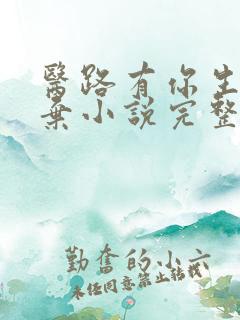 醫路有你生
棄小說完整
勤奮的小六
未經同意禁止轉載